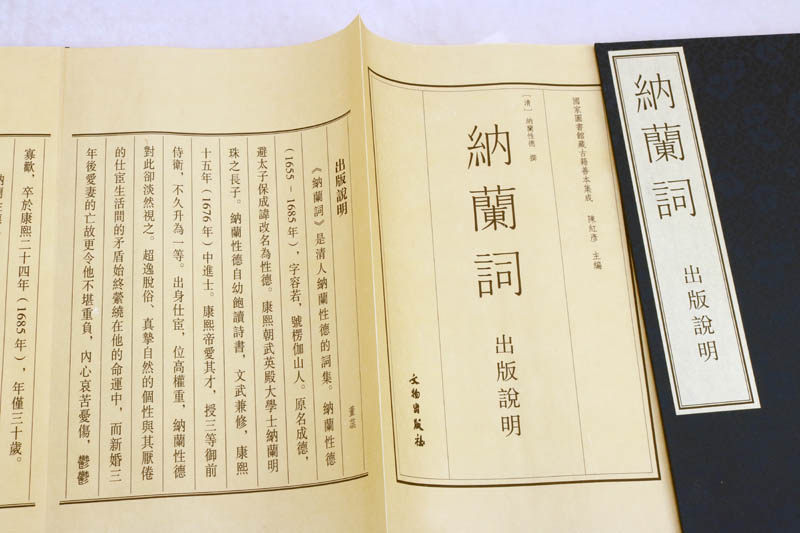 納蘭詞
出版說明
國家圖書館藏古籍善本集成　陳紅彥　主編
[清] 納蘭性德　撰
納蘭詞　出版說明
文物出版社
出版說明
《納蘭詞》是清人納蘭性德的詞集。納蘭性德
(1655－1685年)，字容若，號楞伽山人。原名成德，
避太子保成諱改名為性德。康熙朝武英殿大學士納蘭明
珠之長子。納蘭性德自幼飽讀詩書，文武兼修，康熙
十五年(1676年)中進士。康熙帝愛其才，授三等御前
侍衛，不久升為一等。出身仕宦，位高權重，納蘭性德
對此卻淡然視之。超逸脫俗、真摯自然的個性與其厭倦
的仕宦生活間的矛盾始終縈繞在他的命運中，而新婚三
年後愛妻的亡故更令他不堪重負，內心哀苦憂傷，鬱鬱
寡歡，卒於康熙二十四年(1685年)，年僅三十歲。